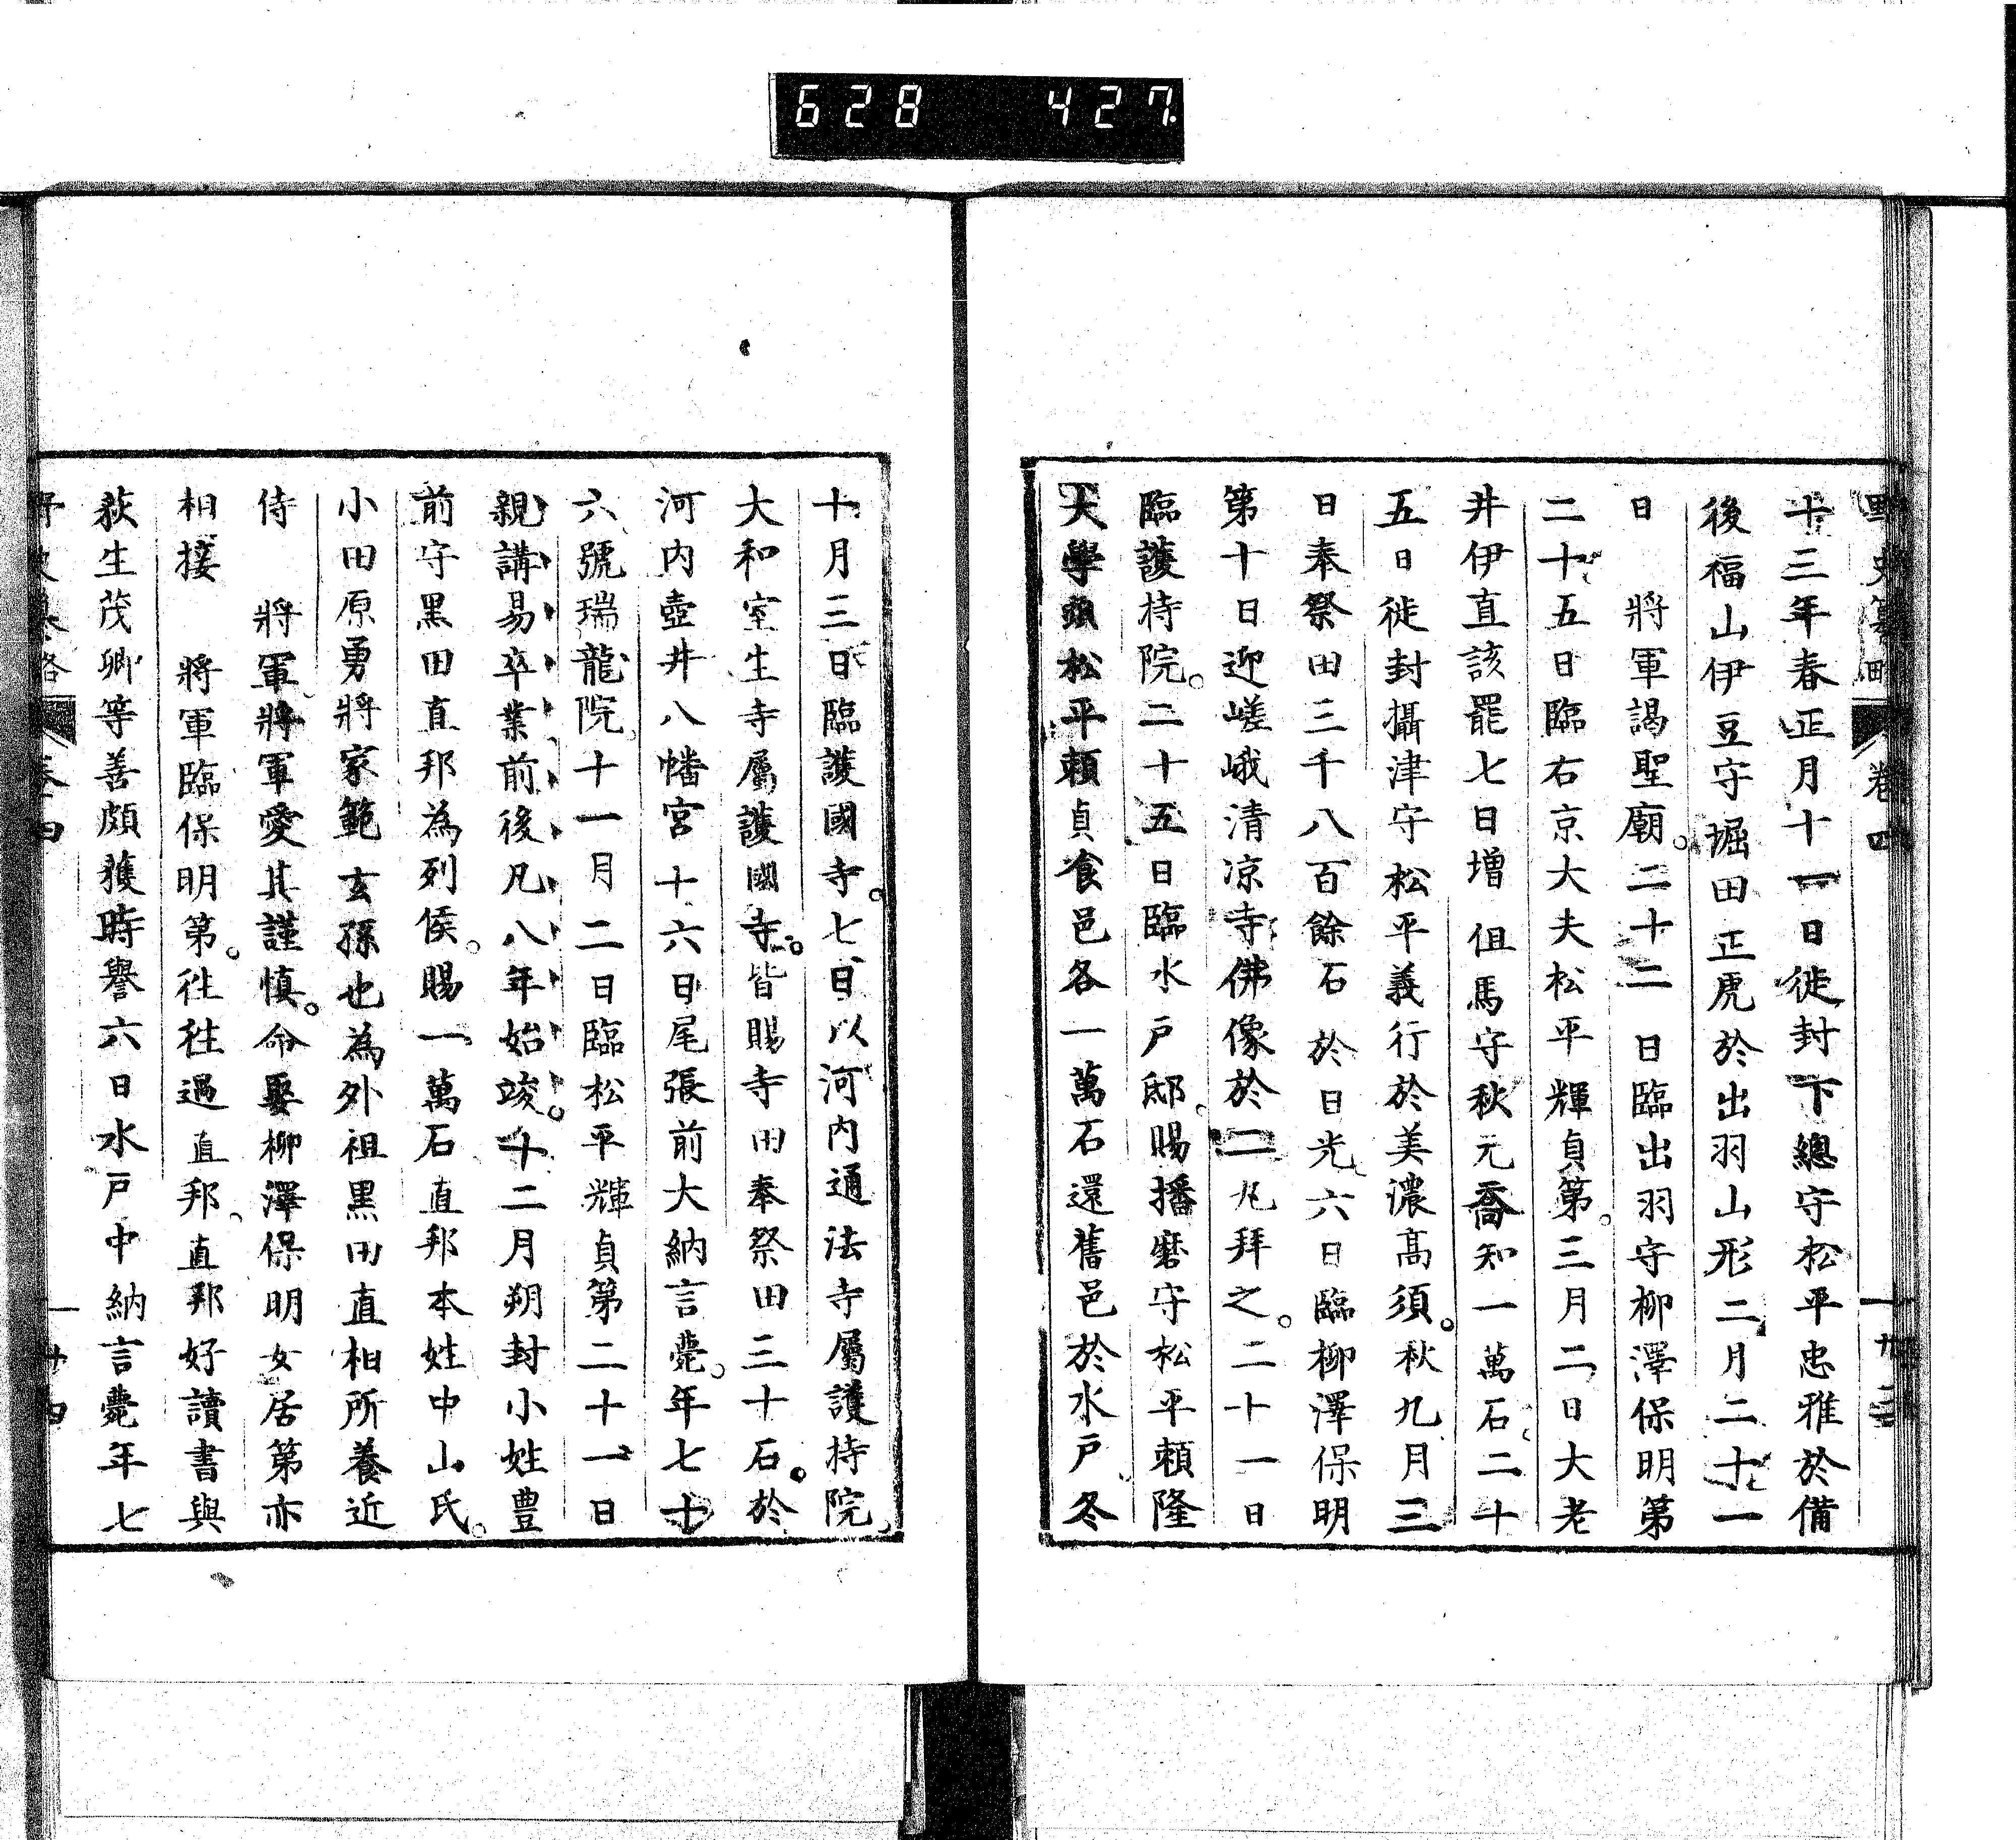 628 427.
野史纂略 卷四
十三年春正月十一日徙封下總守松平忠雅於備
後福山伊豆守堀田正虎於出羽山形二月二十一
日 將軍謁聖廟。二十二日臨出羽守柳澤保明第
二十五日臨右京大夫松平輝貞第。三月二日大老
井伊直該罷七日增但馬守秋元喬知一萬石二十
五日徙封攝津守松平義行於美濃高須。秋九月三
日奉祭田三千八百餘石於日光六日臨柳澤保明
第十日迎嵯峨清凉寺佛像於二丸拜之。二十一日
臨護持院。二十五日臨水戶邸賜播磨守松平賴隆
大學頭松平賴貞食邑各一萬石還舊邑於水戶冬
十月三日臨護國寺。七日以河内通法寺屬護持院
大和室生寺屬護國寺。皆賜寺田奉祭田三十石。於
河内壺井八幡宮十六日尾張前大納言薨。年七十
六號瑞龍院十一月二日臨松平輝貞第二十一日
親講易卒業前後凡八年始竣。十二月朔封小姓豊
前守黑田直邦為列侯。賜一萬石直邦本姓中山氏。
小田原勇將家範玄孫也為外祖黑田直相所養近
侍 將軍將軍愛其謹慎。命娶柳澤保明女居第亦
相接 將軍臨保明第。往往過直邦。直邦好讀書與
荻生茂卿等善頗獲時譽六日水戶中納言薨年七
野史纂略 卷四 廿四